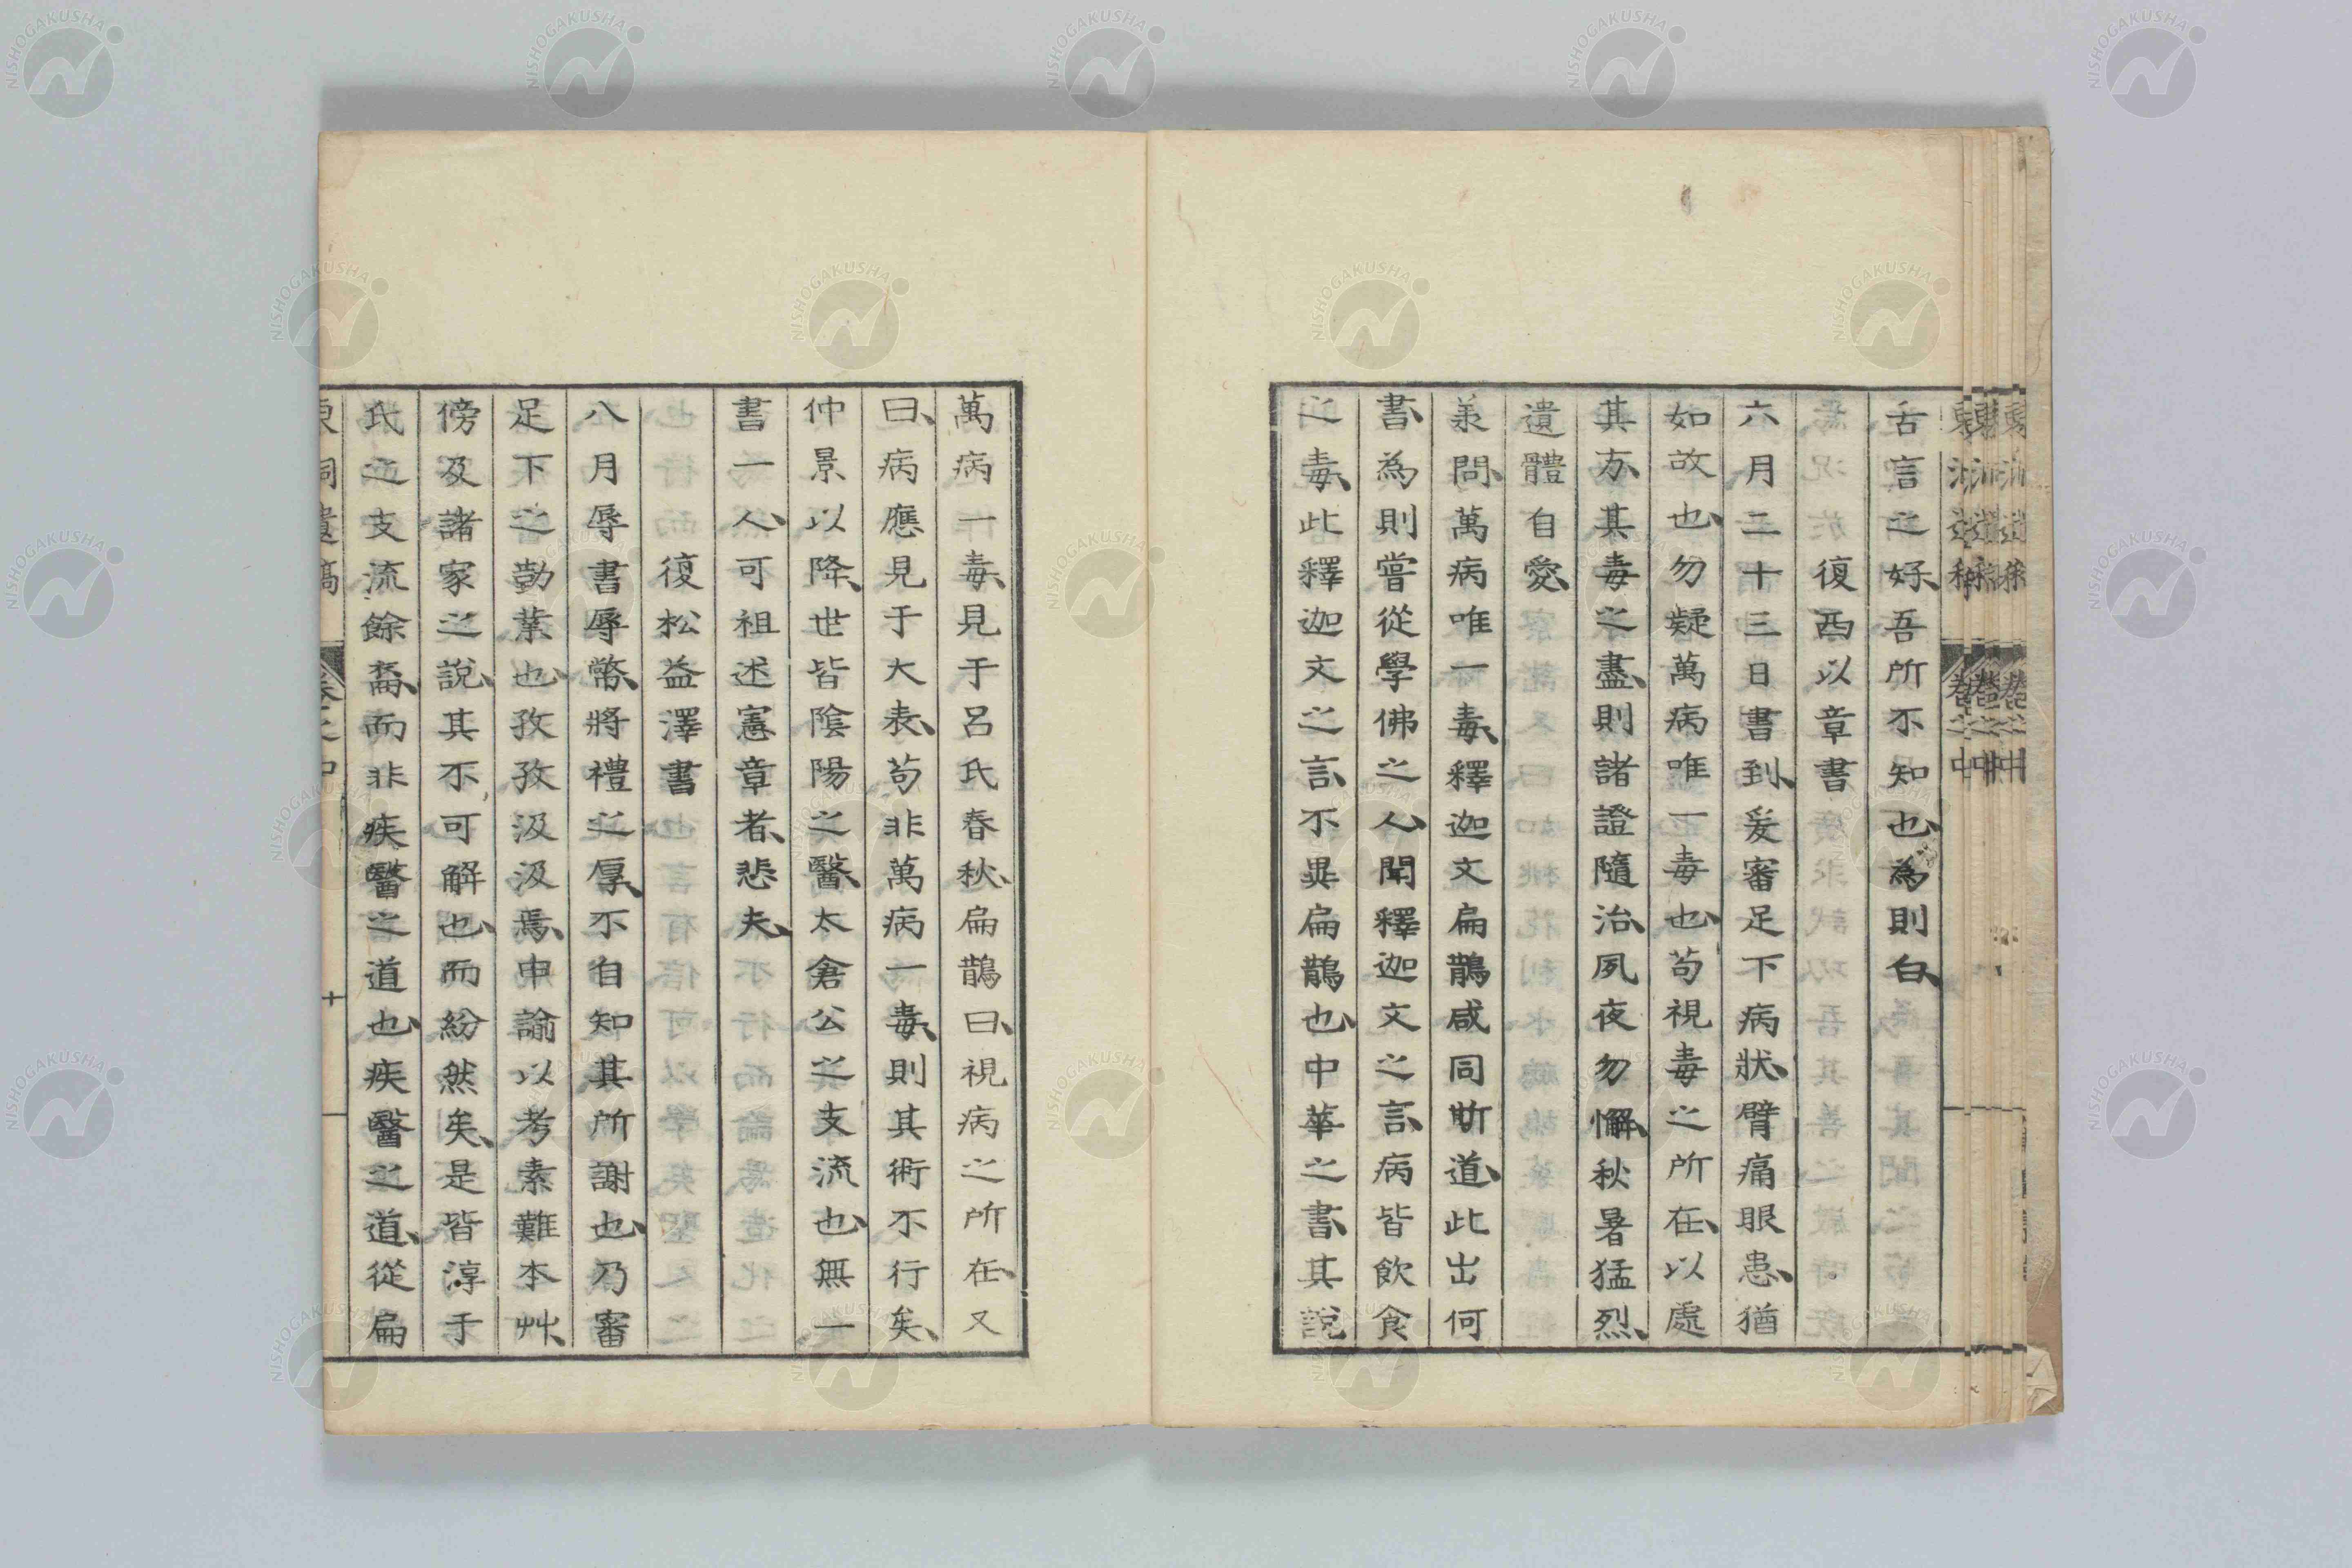 舌言之好、吾所不知也、為則白、
復西以章書
六月二十三日書到、爰審足下病狀、臂痛眼患、猶
如故也、勿疑萬病唯一毒也、苟視毒之所在、以處
其方、其毒之盡、則諸證隨治、夙夜勿懈、秋暑猛烈、
遺體自愛、
承問、萬病唯一毒、釋迦文扁鵲咸同斯道、此出何
書、為則嘗從學佛之人、聞釋迦文之言、病皆飲食
之毒、此釋迦文之言、不異扁鵲也、中華之書、其說
萬病一毒、見于呂氏春秋、扁鵲曰、視病之所在、又
曰、病應見于大表、苟非萬病一毒、則其術不行矣、
仲景以降、世皆陰陽之醫、太倉公之支流也、無一
書一人、可祖述憲章者、悲夫、
復松益澤書
八月辱書辱幣、將禮之厚、不自知其所謝也、乃審
足下之勤業也、孜孜汲汲焉、申諭以考素難本艸、
傍及諸家之說、其不可解也、而紛然矣、是皆淳于
氏之支流餘裔、而非疾醫之道也、疾醫之道、從扁
東洞遺稿 卷之中 十
NISHOGAKUSHA